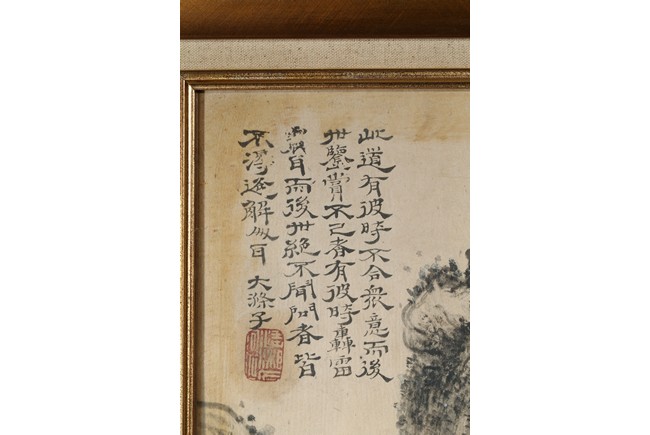 此道有彼時不合衆意而後
世鑒賞不已者有彼時轟雷
震耳而後世絕不聞問者皆
不得逢解人耳 大滌子